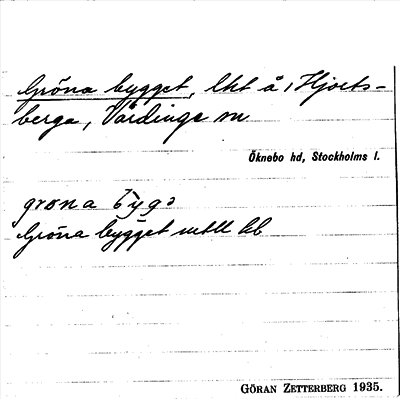 Gröna bygget, lht å, Hjorts-
berga, Vårdinge sn
Öknebo hd, Stockholms l.
grøna byg
Gröna bygget
GÖRAN ZETTERBERG 1935.